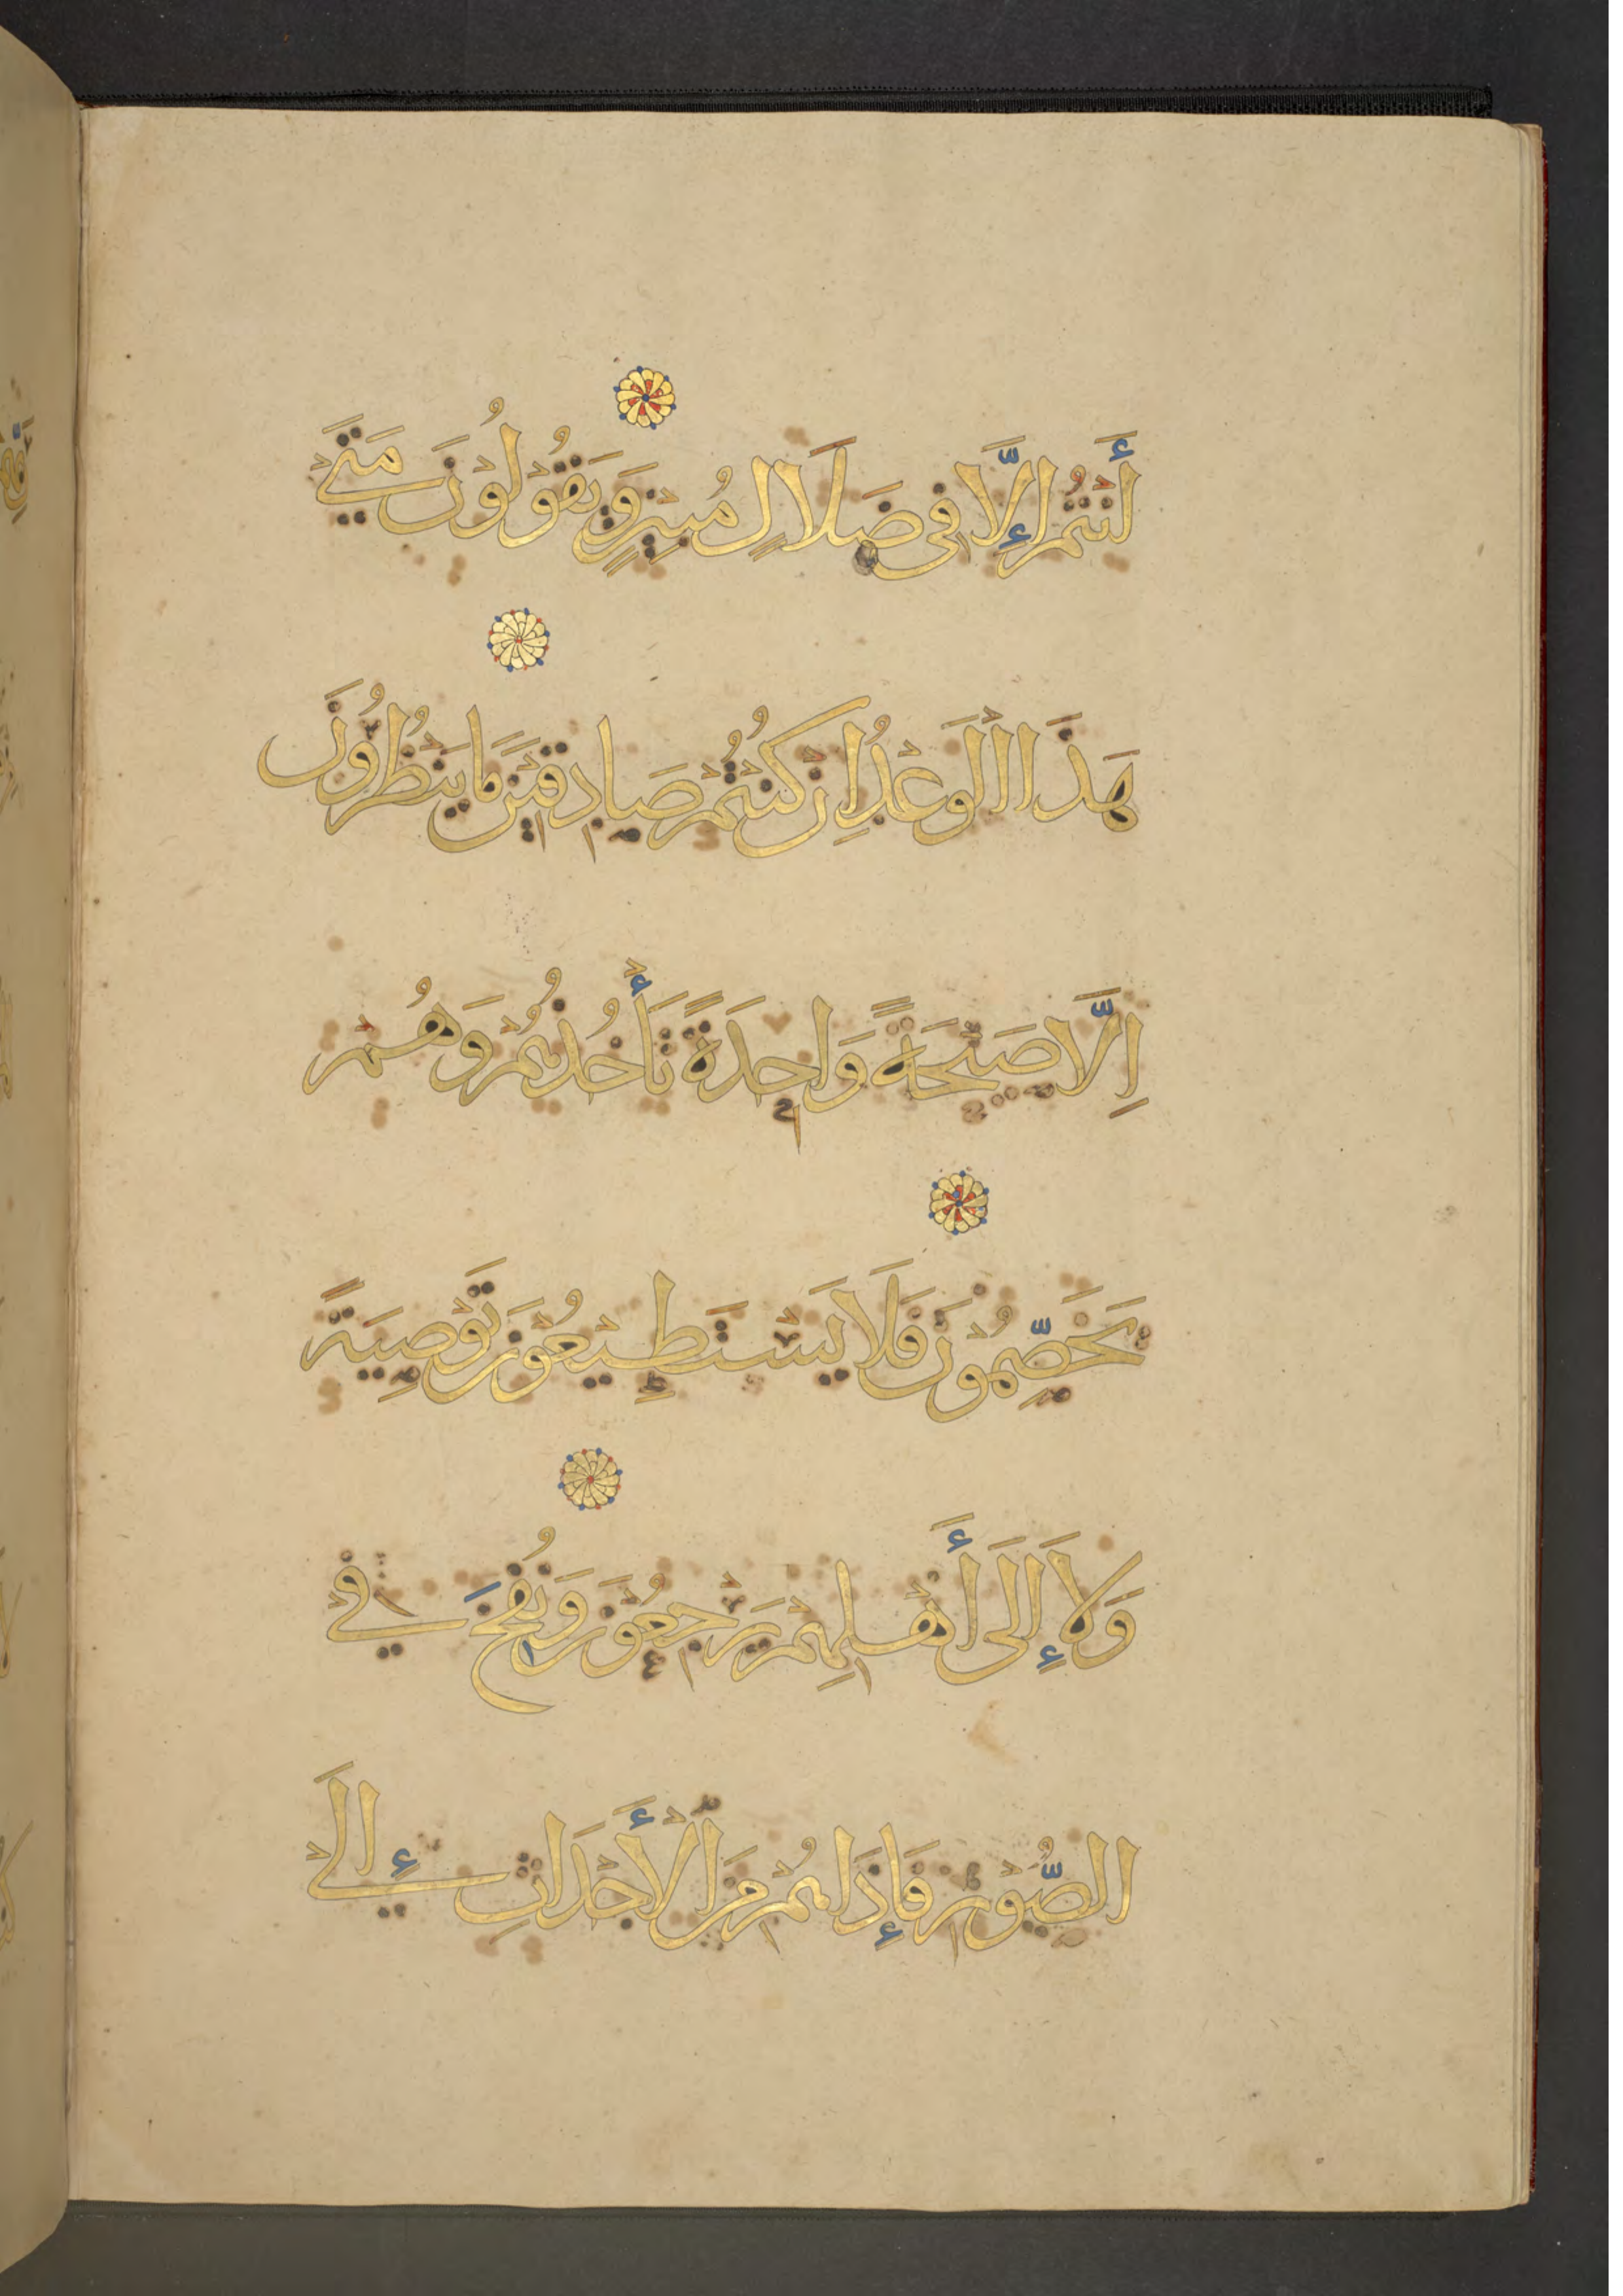 أَنْتُمْ إِلَّا فِى ضَلَالٍ مُبِينٍ وَيَقُوْلُوْنَ مَتَىْ
هَذَا الْوَعْدُ اِنْ كُنْتُمْ صَادِقِيْنَ مَا يَنْظُرُوْنَ
اِلَّا صَيْحَةً وَاحِدَةً تَأْخُذُهُمْ وَهُمْ
يَخَصِّمُوْنَ فَلَا يَسْتَطِيْعُوْنَ تَوْصِيَةً
وَلَا إِلَى أَهْلِهِمْ يَرْجِعُوْنَ وَنُفِخَ فِيْ
الصُّوْرِ فَإِذَا هُمْ مِنَ الْأَجْدَاثِ إِلَىْ